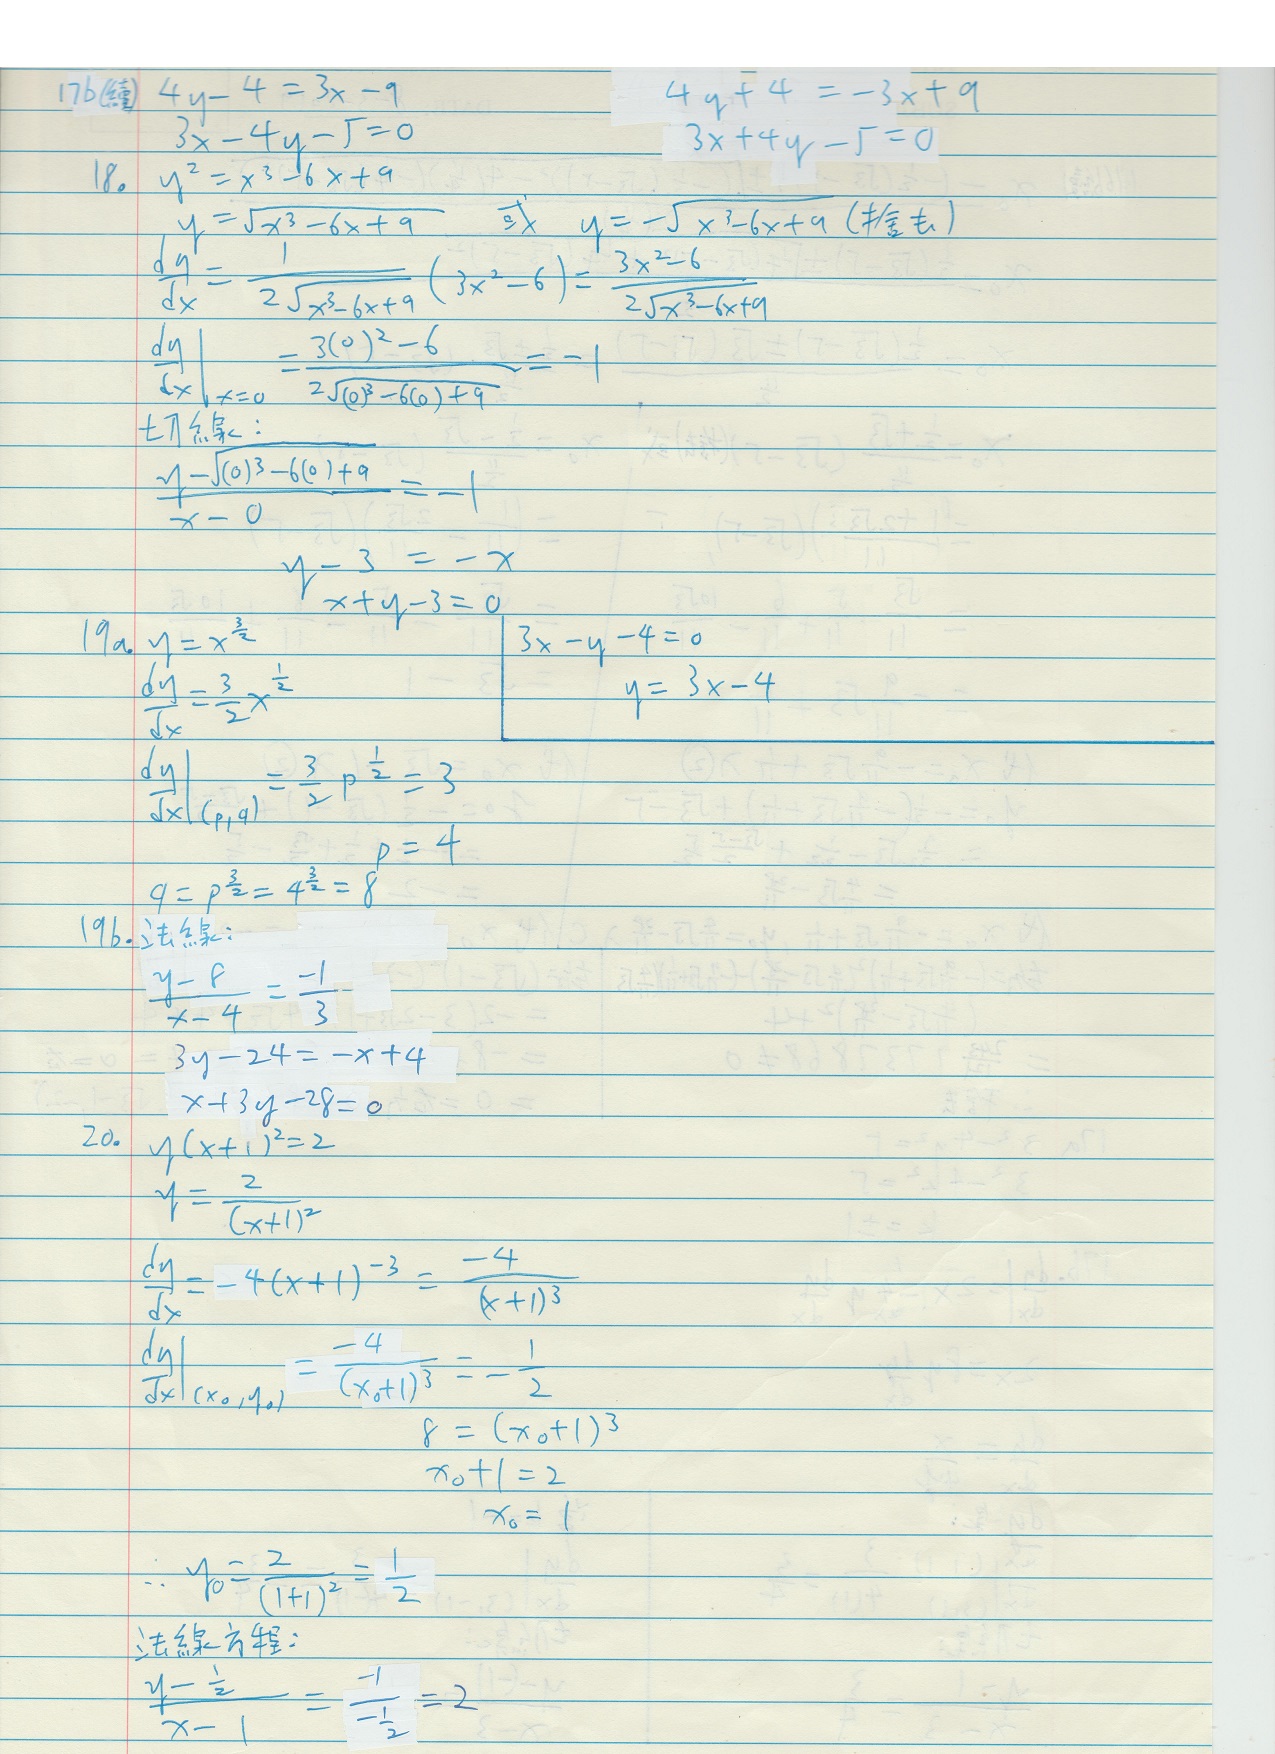 17b(續) 4y-4=3x-9    4y+4=-3x+9
3x-4y-5=0    3x+4y-5=0
18. y²=x³-6x+9
y=√(x³-6x+9) 或 y=-√(x³-6x+9) (捨去)
dy/dx = 1/(2√(x³-6x+9)) (3x²-6) = (3x²-6)/(2√(x³-6x+9))
dy/dx|x=0 = (3(0)²-6)/(2√((0)³-6(0)+9)) = -1
切線:
(y-√((0)³-6(0)+9))/(x-0) = -1
y-3=-x
x+y-3=0
19a. y=x^(3/2)    3x-y-4=0
dy/dx = 3/2 x^(1/2)    y=3x-4
dy/dx|(p,q) = 3/2 p^(1/2) = 3
p=4
q=p^(3/2)=4^(3/2)=8
19b. 法線:
(y-8)/(x-4) = -1/3
3y-24=-x+4
x+3y-28=0
20. y(x+1)²=2
y=2/(x+1)²
dy/dx=-4(x+1)⁻³ = -4/(x+1)³
dy/dx|(x₀,y₀) = -4/(x₀+1)³ = -1/2
8=(x₀+1)³
x₀+1=2
x₀=1
∴ y₀=2/(1+1)²=1/2
法線方程:
(y-1/2)/(x-1) = -1/(-1/2) = 2